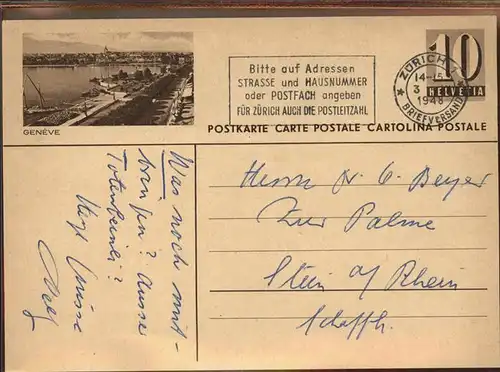 GENÈVE
Bitte auf Adressen
STRASSE und HAUSNUMMER
oder POSTFACH angeben
FÜR ZÜRICH AUCH DIE POSTLEITZAHL
ZÜRICH
14-15
3
1948
BRIEFVERSAND
10
HELVETIA
POSTKARTE CARTE POSTALE CARTOLINA POSTALE
Was noch mit-
bringen? Ausser
Totenbeinli?
Herzl Grüsse
Herrn Beyer
Zur Palme
Stein a/ Rhein
Schaffh.